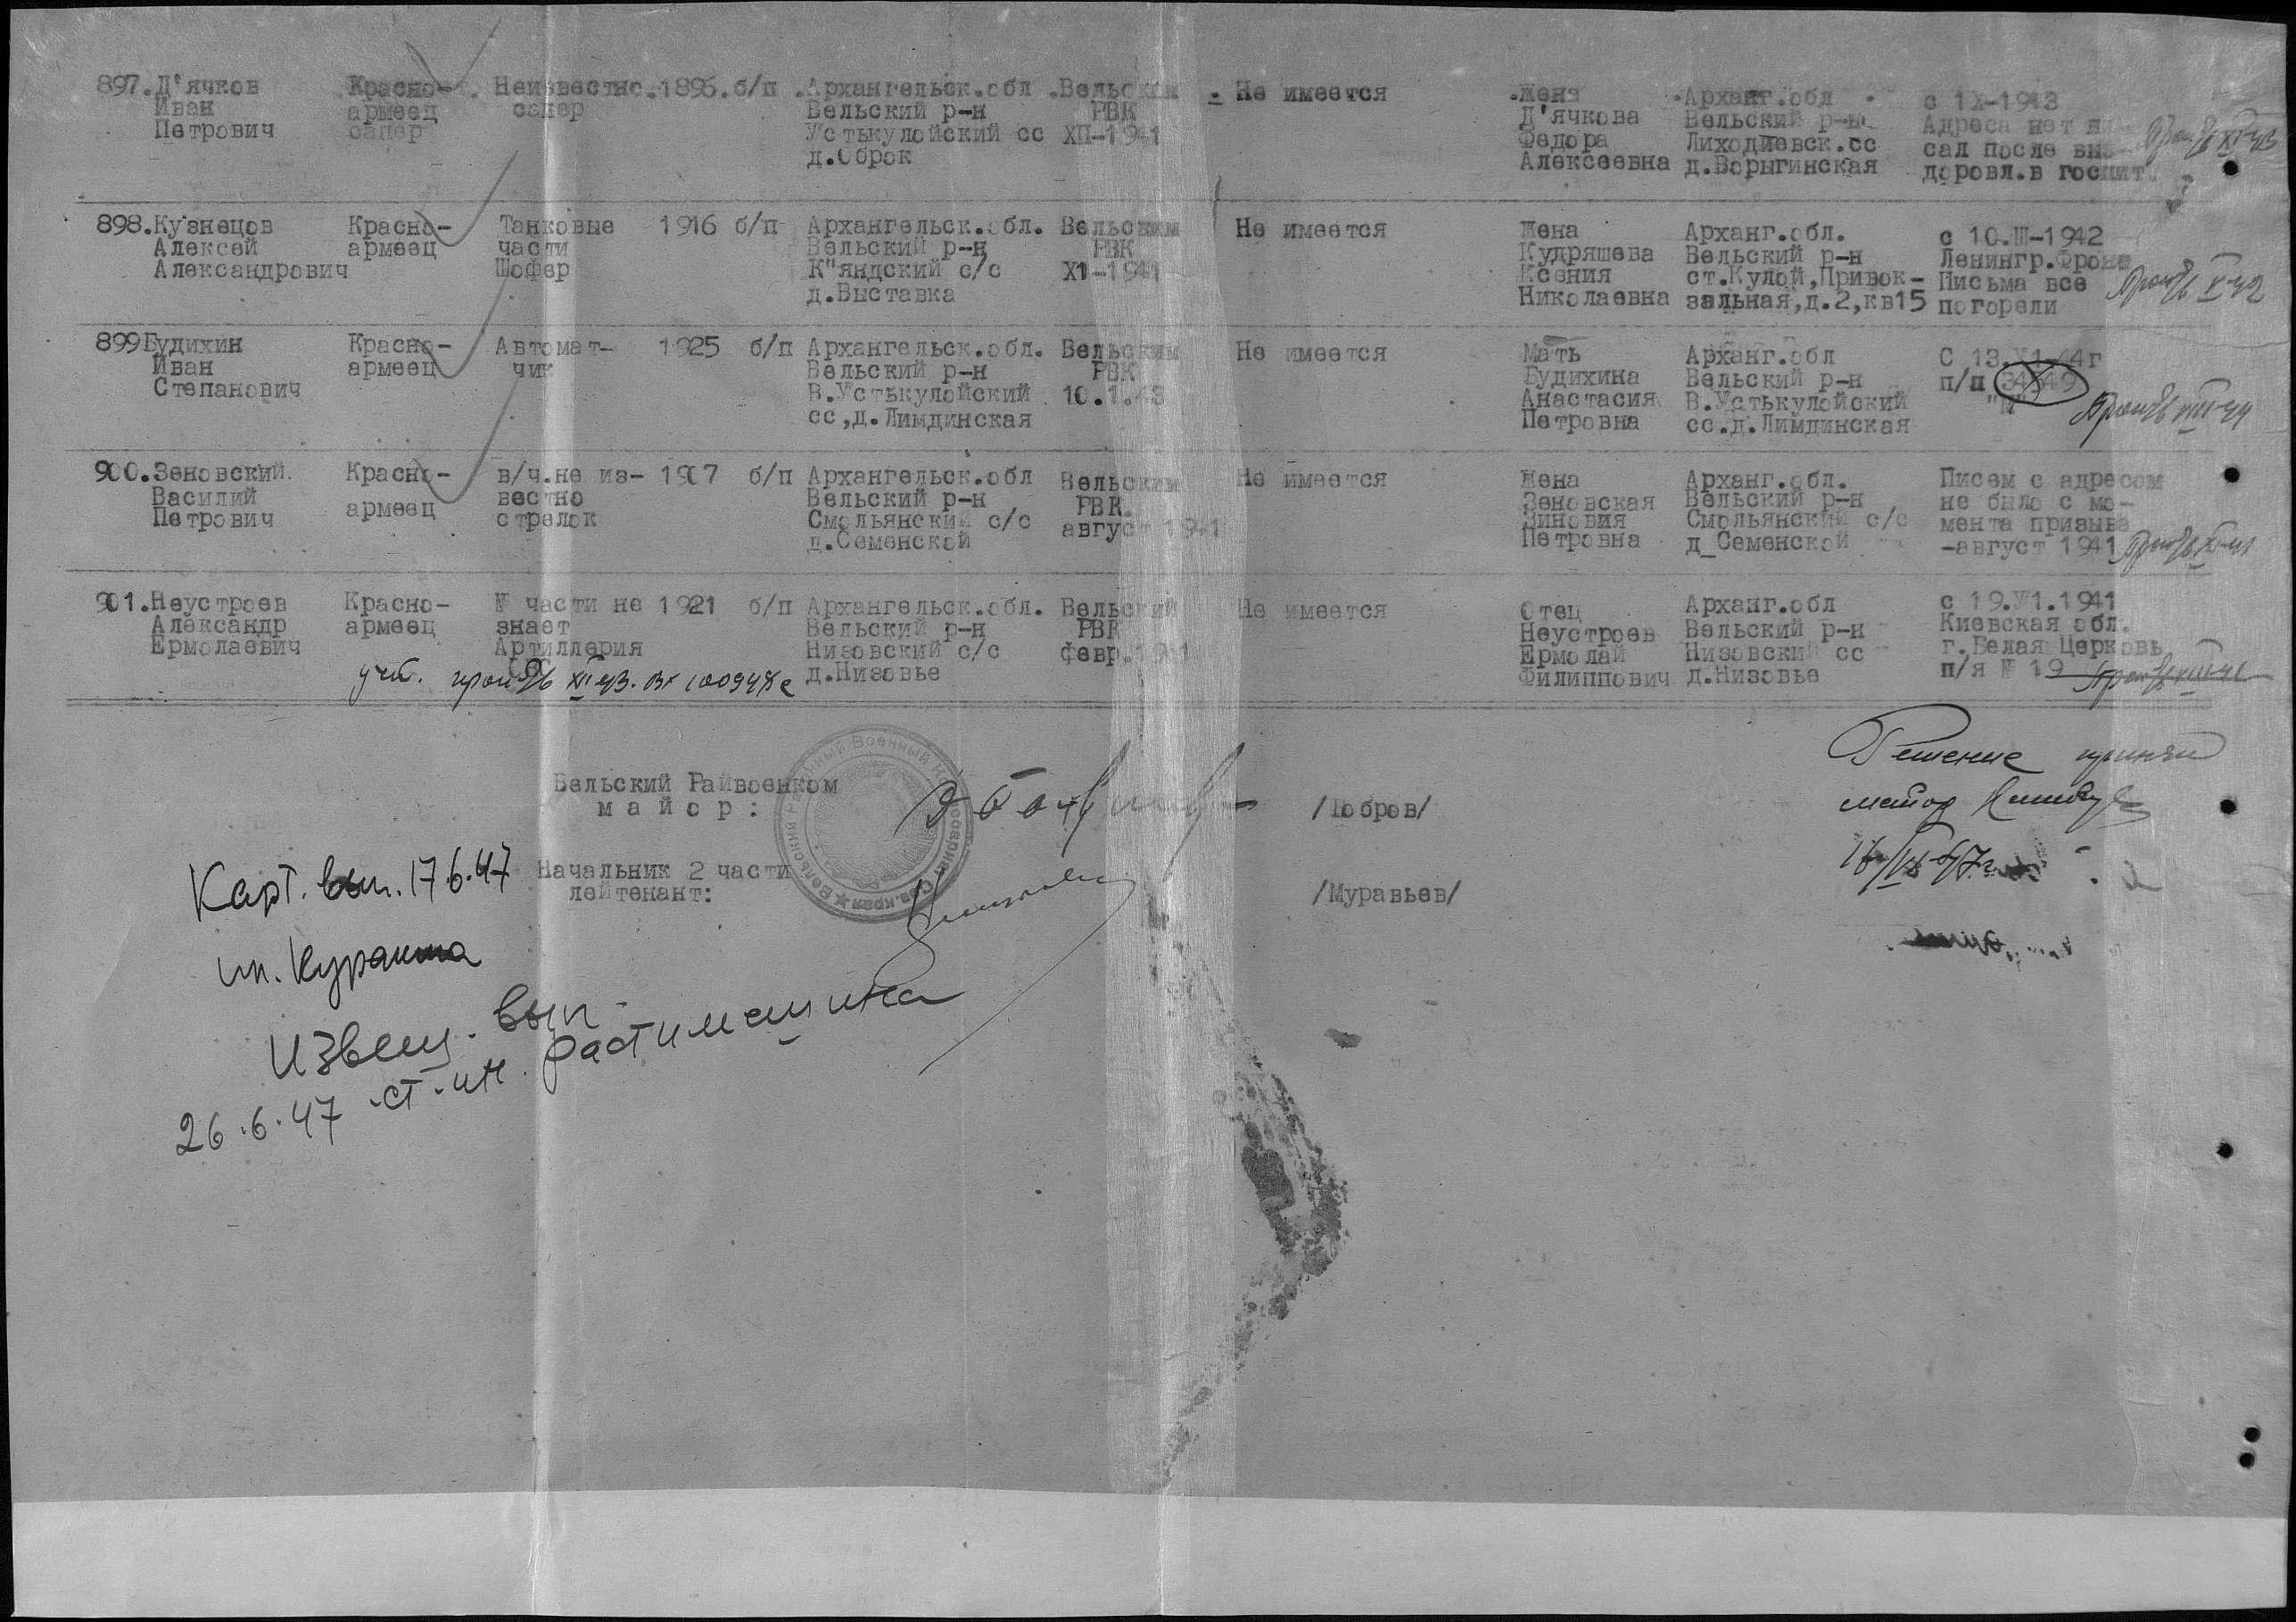 897. Д'ячков Красно- Неизвестно. 1896. б/п . Архангельск.обл . Вельским - Не имеется Жена Арханг.обл . с 1Х-1943
Иван армеец сапер Вельский р-н РВК Д'ячкова Вельский р-н Адреса нет пи-
Петрович сапер Устькулойский сс ХП-1941 Федора Лиходиевск.сс сал после выз-
д.Оброк Алексеевна д.Ворыгинская доровл.в госпит.
898.Кузнецов Красно- Танковые 1916 б/п Архангельск.обл. Вельским Не имеется Жена Арханг.обл. с 10.Ш-1942
Алексей армеец части Вельский р-н РВК Кудряшева Вельский р-н Ленингр.Фронт
Александрович Шофер К"яндский с/с Х1-1941 Ксения ст.Кулой,Привок- Письма все
д.Выставка Николаевна зальная,д.2,кв15 погорели
899 Будихин Красно- Автомат- 1925 б/п Архангельск.обл. Вельским Не имеется Мать Арханг.обл С 13.У1-44г
Иван армеец чик Вельский р-н РВК Будихина Вельский р-н п/п 34549
Степанович В.Устькулойский 10.1.43 Анастасия В.Устькулойский "М"
сс,д.Лимдинская Петровна сс.д.Лимдинская
900.Зеновский Красно- в/ч.не из- 1907 б/п Архангельск.обл Вельским Не имеется Жена Арханг.обл. Писем с адресом
Василий армеец вестно Вельский р-н РВК. Зеновская Вельский р-н не было с мо-
Петрович стрелок Смольянский с/с август 1941 Зиновия Смольянский с/с мента призыва
д.Семенской Петровна д_Семенской -август 1941
901.Неустроев Красно- № части не 1921 б/п Архангельск.обл. Вельский Не имеется Отец Арханг.обл с 19.У1.1941
Александр армеец знает Вельский р-н РВК Неустроев Вельский р-н Киевская обл.
Ермолаевич Артиллерия Низовский с/с февр.1941 Ермолай Низовский сс г.Белая Церковь
д.Низовье Филиппович д.Низовье п/я № 19
Вельский Райвоенком
майор: /Бобров/
Начальник 2 части
лейтенант: /Муравьев/
Решение принял
майор
Карт. вып. 17.6.47
Извещ. вып.
26.6.47 ст.